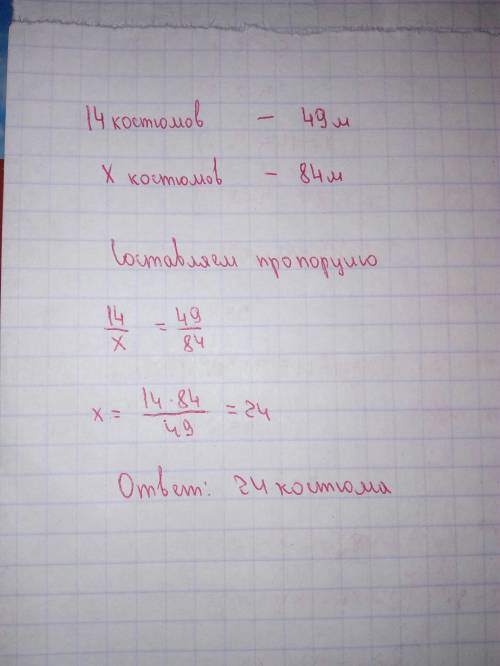 14 костюмов – 49 м
х костюмов – 84 м
Составляем пропорцию
14/х = 49/84
х = 14·84/49 = 24
Ответ: 24 костюма